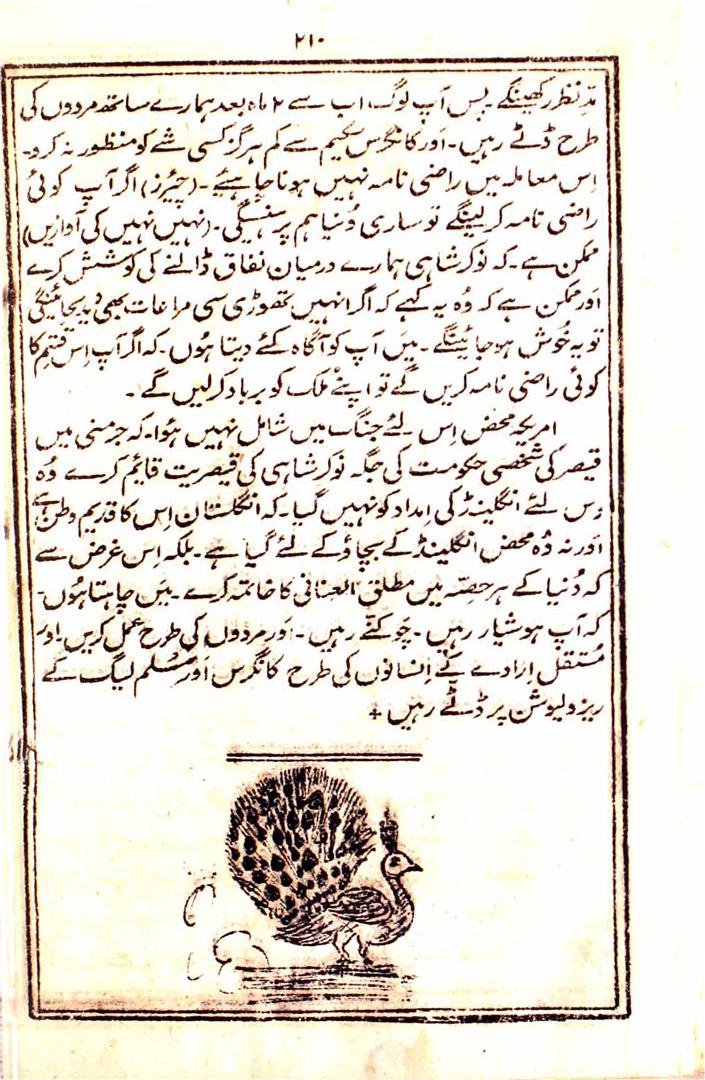 ۲۱۰
مدِّ نظر رکھینگے۔ پس آپ لوگ اب سے ۲ ماہ بعد ہمارے ساتھ مردوں کی
طرح ڈٹے رہیں۔ اَور کانگرس سکیم سے کم ہرگز کسی شے کو منظور نہ کرو۔
اِس معاملہ میں راضی نامہ نہیں ہونا چاہیئے۔ (چیئرز) اگر آپ کوئی
راضی نامہ کر لینگے تو ساری دُنیا ہم پر ہنسیگی۔ (نہیں نہیں کی آوازیں)
ممکن ہے۔ کہ نوکر شاہی ہمارے درمیان نفاق ڈالنے کی کوشش کرے
اَور ممکن ہے کہ وُہ یہ کہے کہ اگر انہیں تھوڑی سی مراعات بھی دیدیجائینگی
تو یہ خُوش ہو جائینگے۔ میَں آپ کو آگاہ کئے دیتا ہُوں۔ کہ اگر آپ اِس قِسم کا
کوئی راضی نامہ کریں گے تو اپنے مُلک کو برباد کر لیں گے۔
امریکہ محض اِس لئے جنگ میں شامل نہیں ہُوا۔ کہ جرمنی میں
قیصر کی شخصی حکومت کی جگہ نوکر شاہی کی قیصریت قایٔم کرے وُہ
اِس لئے انگلینڈ کی اِمداد کو نہیں گیا۔ کہ انگلستان اِس کا قدیم وطن ہے
اَور نہ وُہ محض انگلینڈ کے بچاؤ کے لئے گیا ہے۔ بلکہ اِس غرض سے
کہ دُنیا کے ہر حِصّہ میں مطلق العنانی کا خاتمہ کرے۔ میَں چاہتا ہُوں۔
کہ آپ ہوشیار رہیں۔ چوکنّے رہیں۔ اَور مردوں کی طرح عمل کریں۔ اور
مُستقل اِرادے کے اِنسانوں کی طرح کانگرس اَور مُسلم لیگ کے
ریزولیوشن پر ڈٹے رہیں ۔